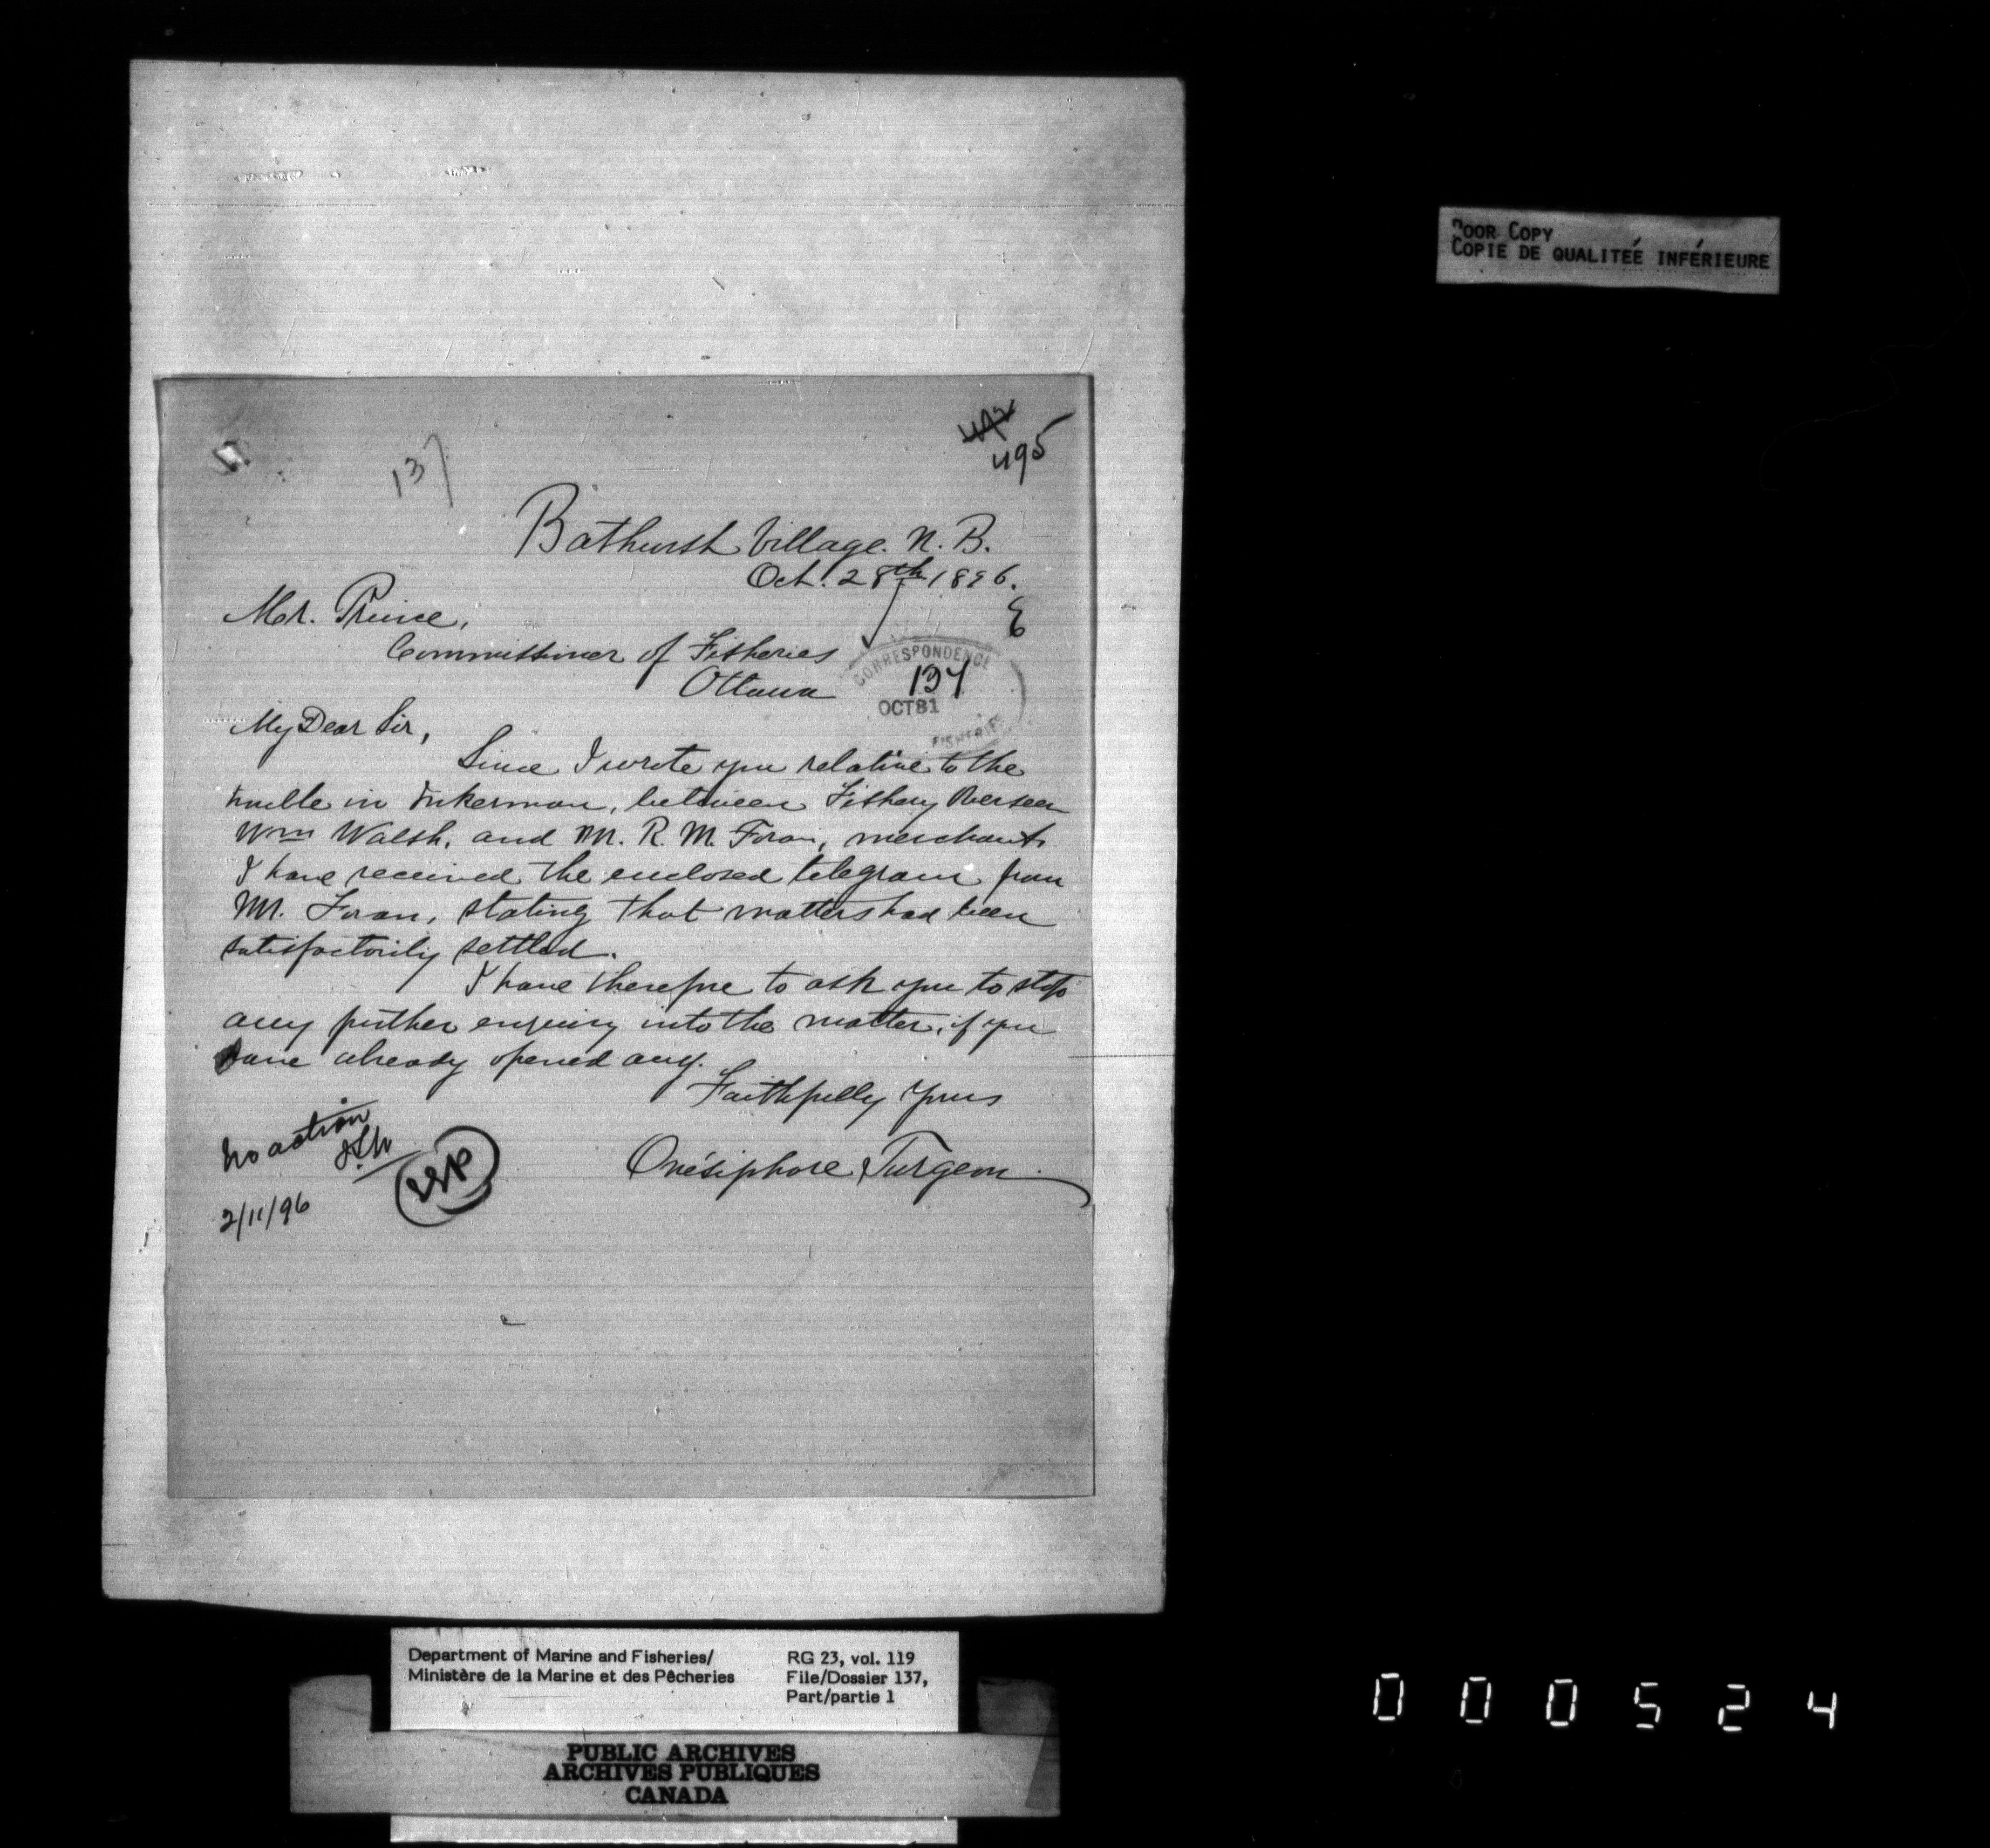 POOR COPY
COPIE DE QUALITÉE INFÉRIEURE
495
137
Bathurst Village. N. B.
Oct. 28th 1896.
Mr. Prince,
Commissioner of Fisheries
Ottawa
CORRESPONDENCE
137
OCT 31
FISHERIES
My Dear Sir,
Since I wrote you relative to the
trouble in Inkerman, between Fishery Overseer
Wm Walsh, and Mr. R. M. Foran, merchant
I have received the enclosed telegram from
Mr. Foran, stating that matters had been
satisfactorily settled.
I have therefore to ask you to stop
any further enquiry into the matter, if you
have already opened any.
Faithfully Yours
Onésiphore Turgeon
No action
2/11/96
Department of Marine and Fisheries/
Ministère de la Marine et des Pêcheries
RG 23, vol. 119
File/Dossier 137,
Part/partie 1
PUBLIC ARCHIVES
ARCHIVES PUBLIQUES
CANADA
000524